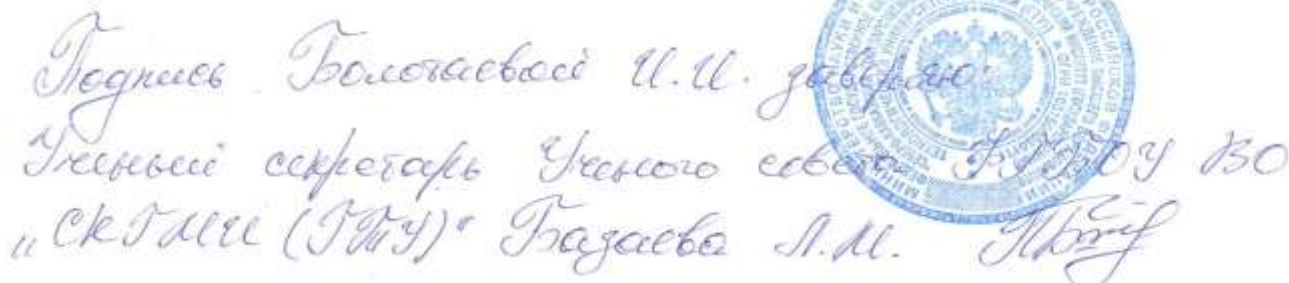 Подпись Болотаевой И.И. заверяю:
Ученый секретарь Ученого совета ФГБОУ ВО
„СКГМИ (ГТУ)" Базаева Л.М.